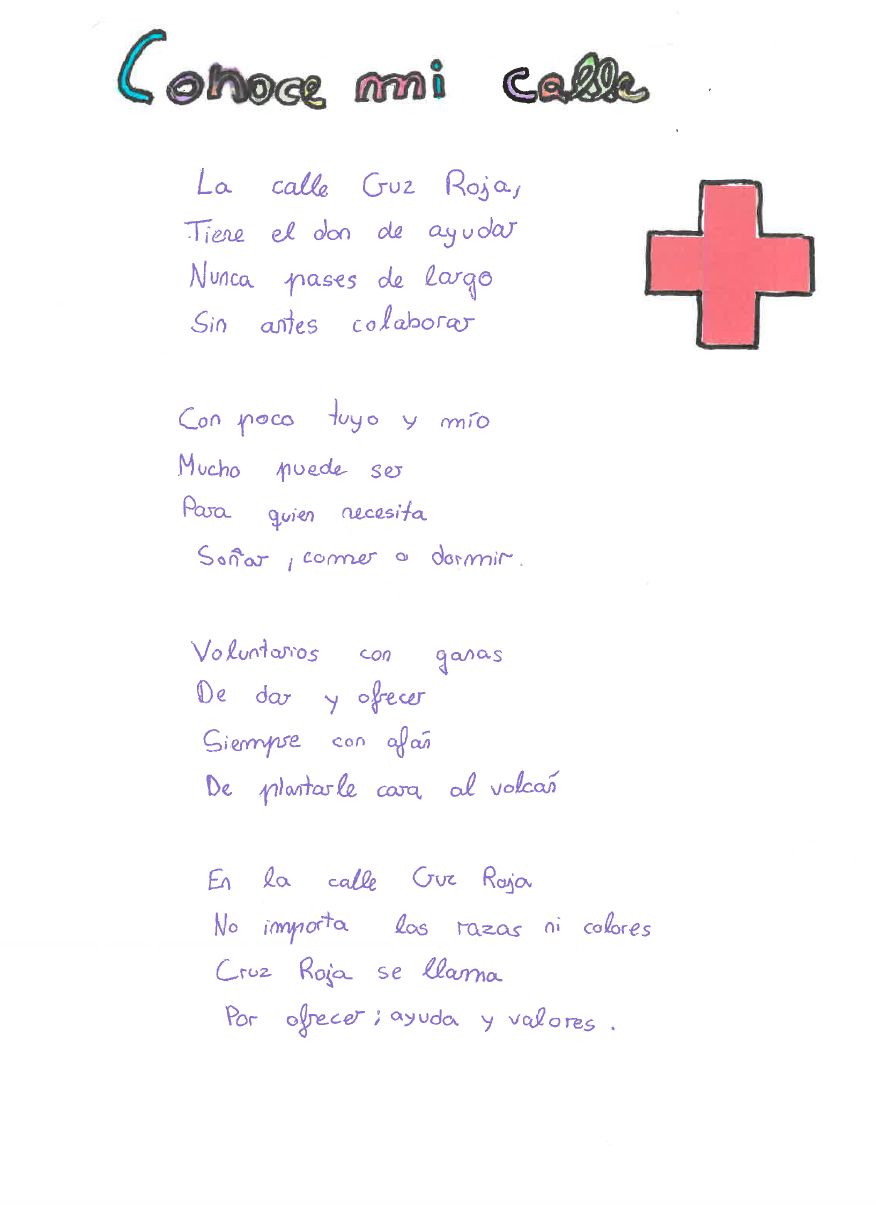 Conoce mi calle
La calle Cruz Roja,
Tiene el don de ayudar
Nunca pases de largo
Sin antes colaborar
Con poco tuyo y mío
Mucho puede ser
Para quien necesita
Soñar, comer o dormir.
Voluntarios con ganas
De dar y ofrecer
Siempre con afán
De plantarle cara al volcán
En la calle Cruz Roja
No importa las razas ni colores
Cruz Roja se llama
Por ofrecer; ayuda y valores.